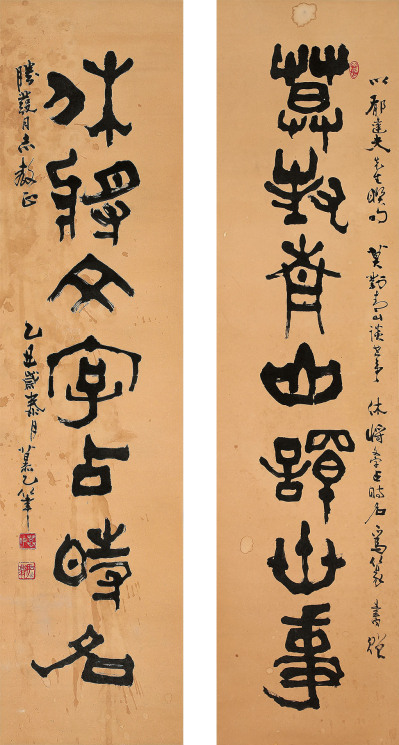 以郁達夫先生聯句 莫對青山談世事 休將文字占時名 寫篆書贈
莫對青山譚世事
休將文字占時名
勝護同志教正
乙丑歲春月